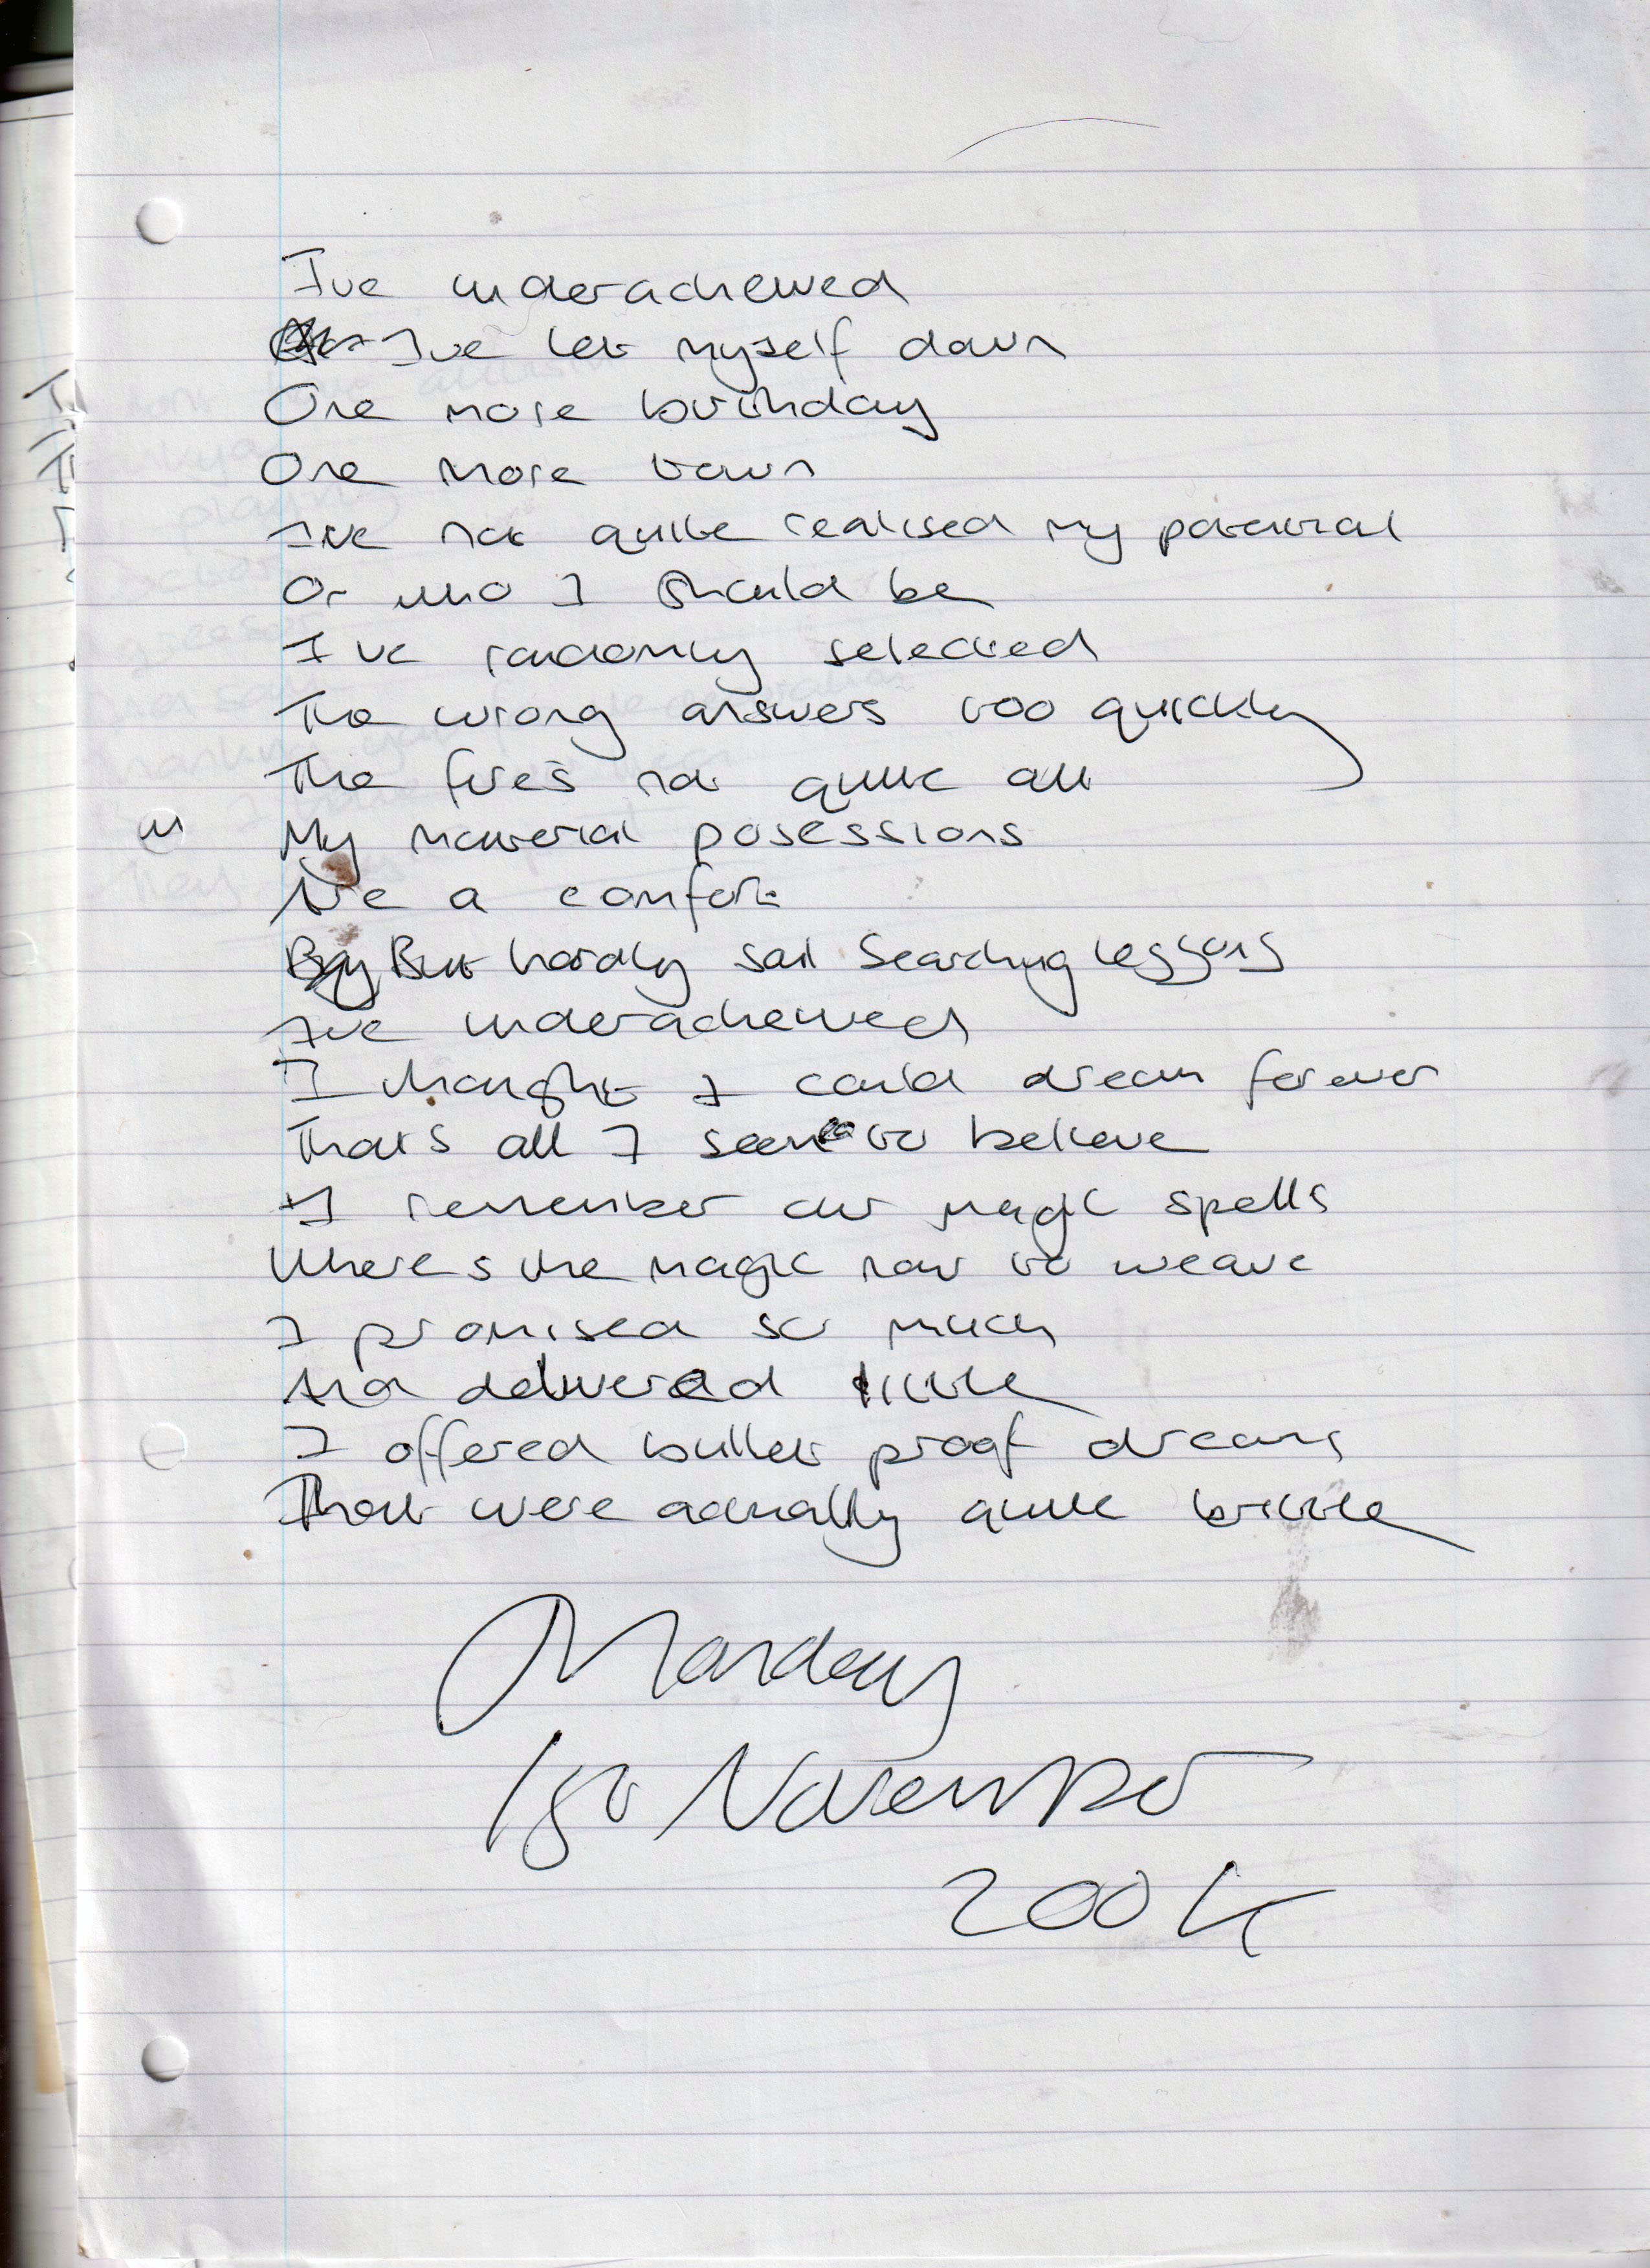 I've underacheived
I've let myself down
One more birthday
One more town
I've not quite realised my potential
Or who I should be
I've randomly selected
The wrong answers too quickly
The fire's not quite out
My material posessions
Are a comfort
But hardly soul searching lessons
I've underacheived
I thought I could dream forever
That's all I seem to believe
I remember our magic spells
Where's the magic now to weave
I promised so much
And delivered little
I offered bullet proof dreams
That were actually quite brittle
Monday
1st November
2004